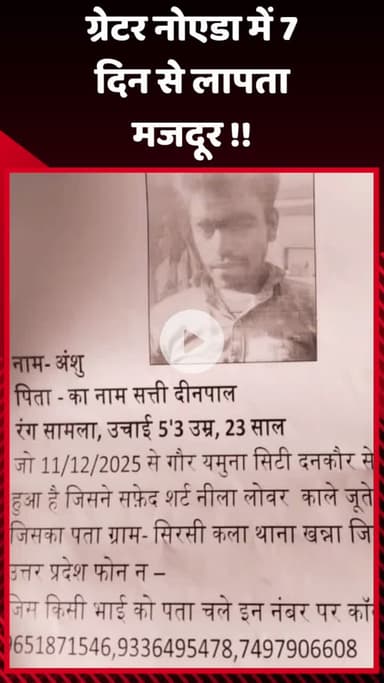 ग्रेटर नोएडा में 7
दिन से लापता
मजदूर !!
नाम- अंशु
पिता - का नाम सत्ती दीनपाल
रंग सामला, उचाई 5'3 उम्र, 23 साल
जो 11/12/2025 से गौर यमुना सिटी दनकौर से
हुआ है जिसने सफ़ेद शर्ट नीला लोवर काले जूते
जिसका पता ग्राम- सिरसी कला थाना खन्ना जि
उत्तर प्रदेश फोन न –
जिस किसी भाई को पता चले इन नंबर पर कॉ
9651871546,9336495478,7497906608